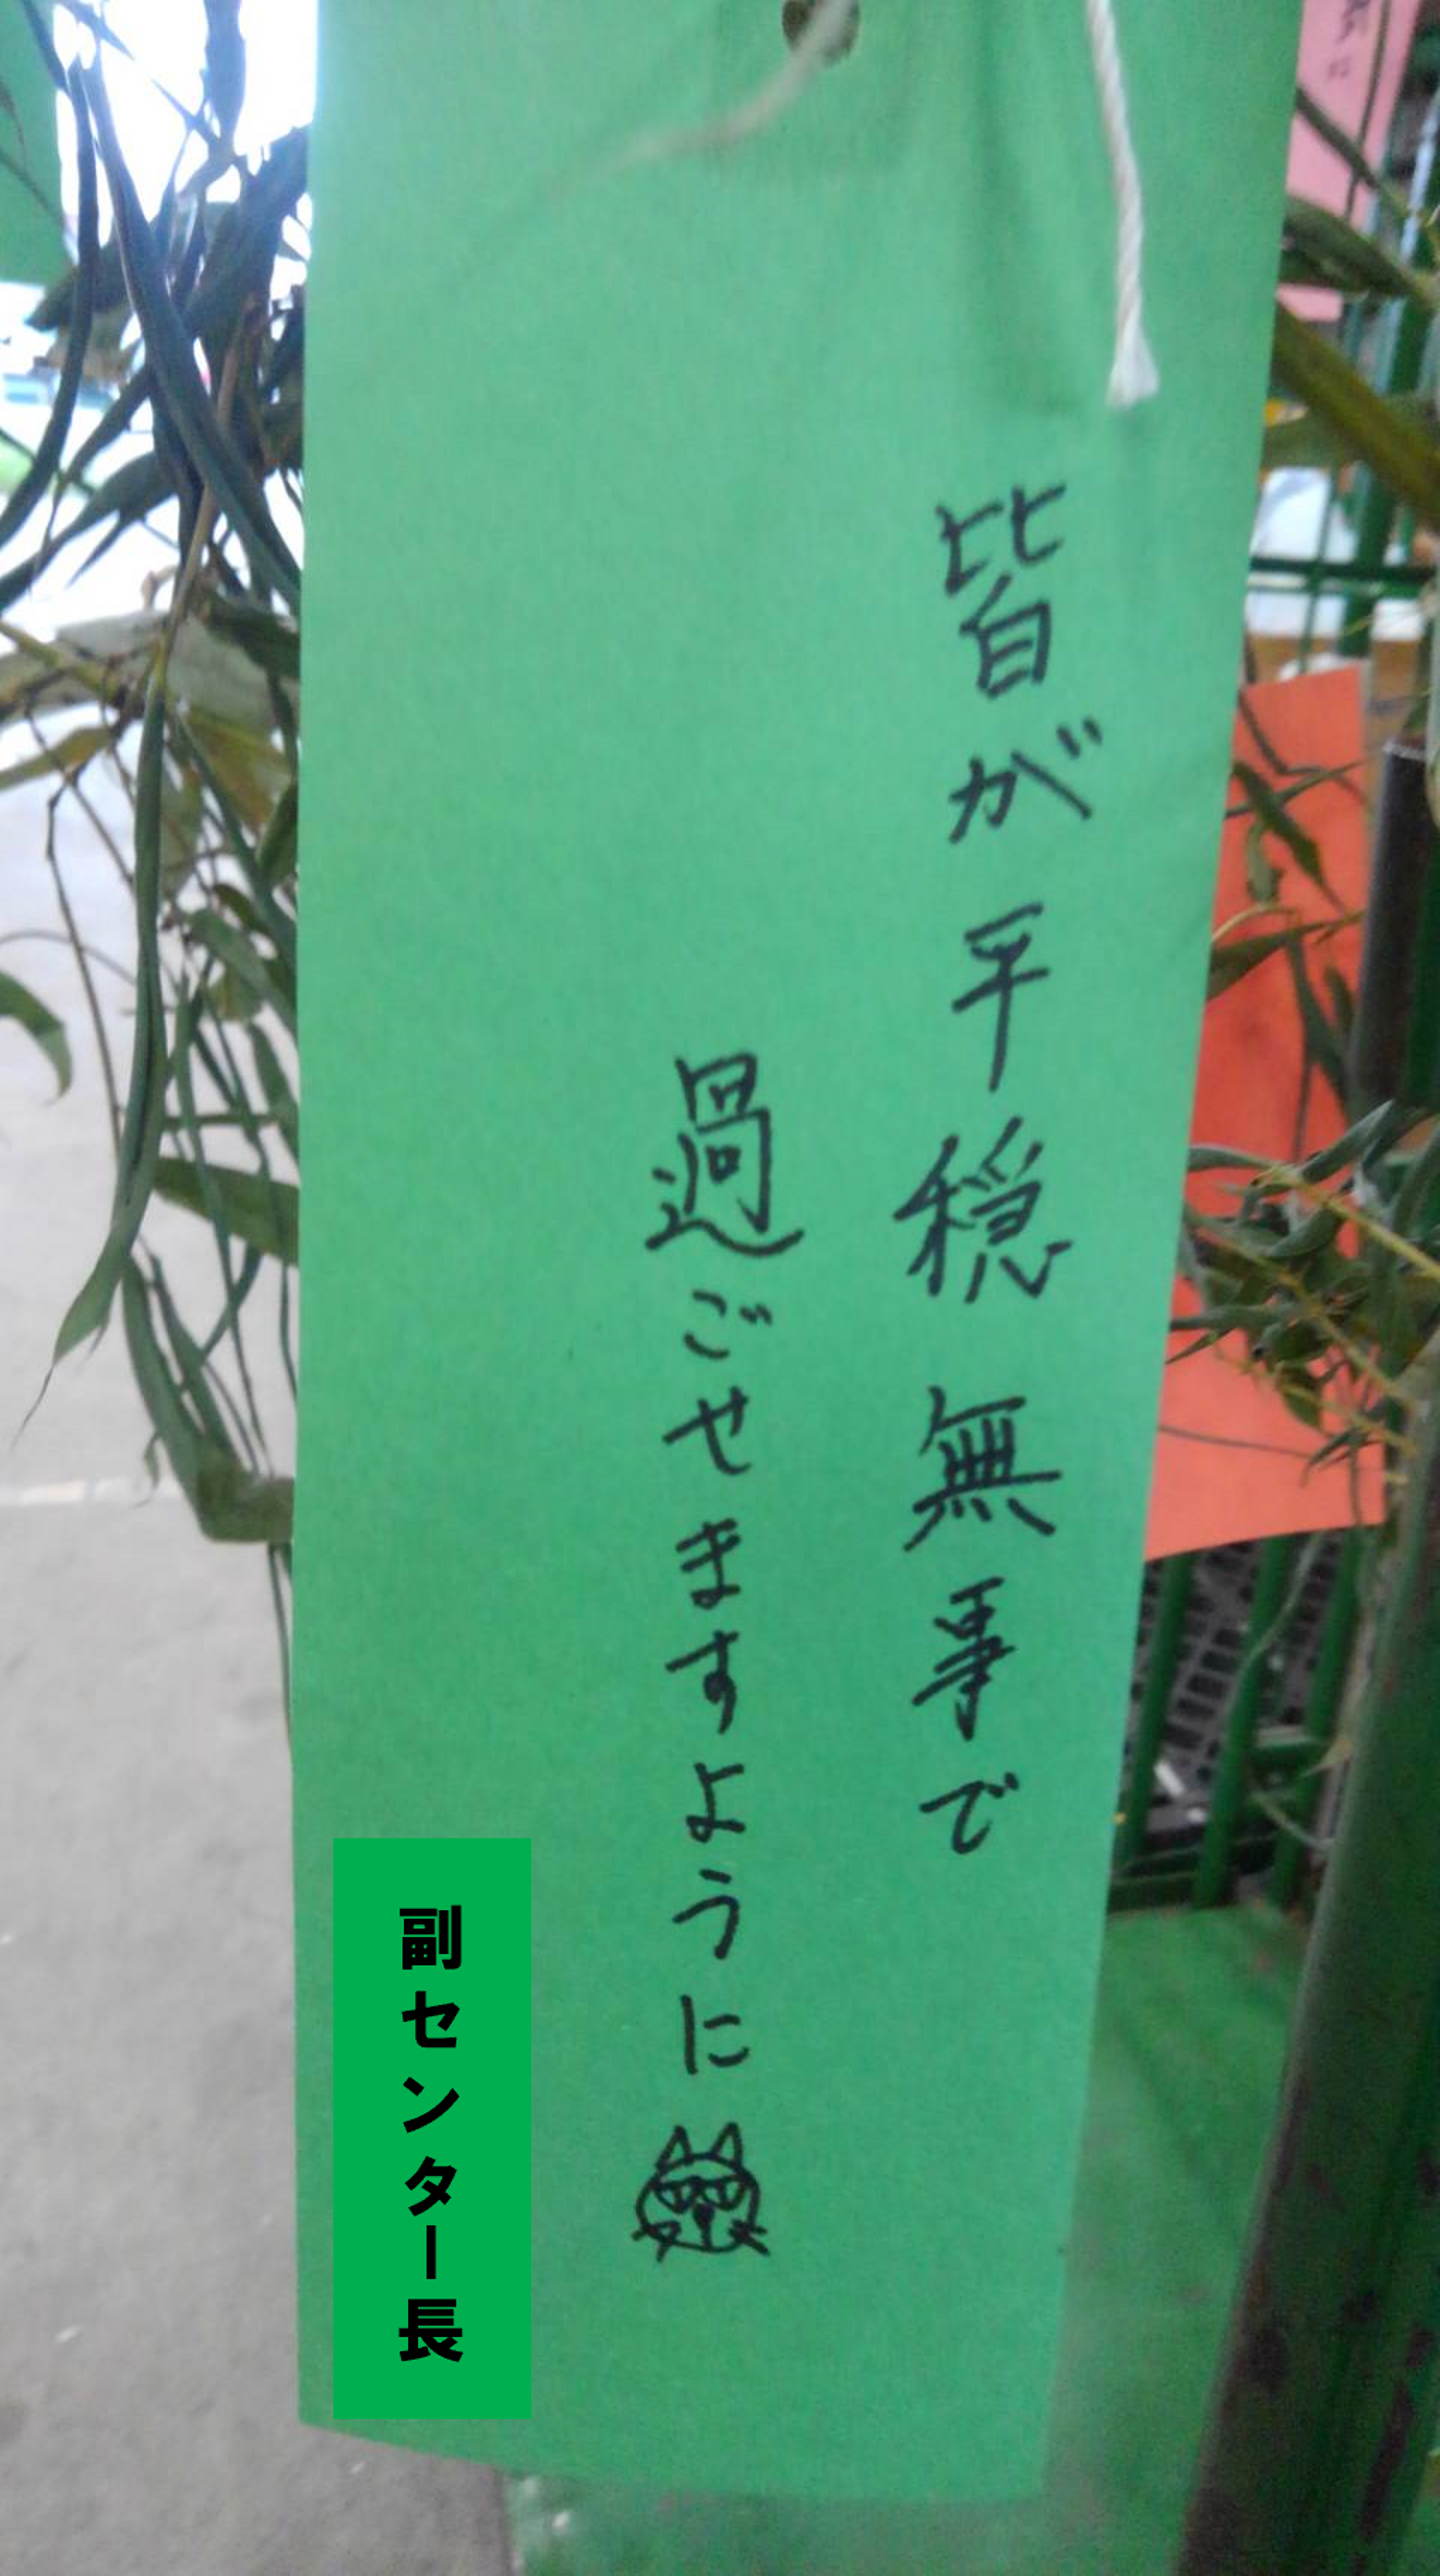 皆が平穏無事で
過ごせますように
副センター長